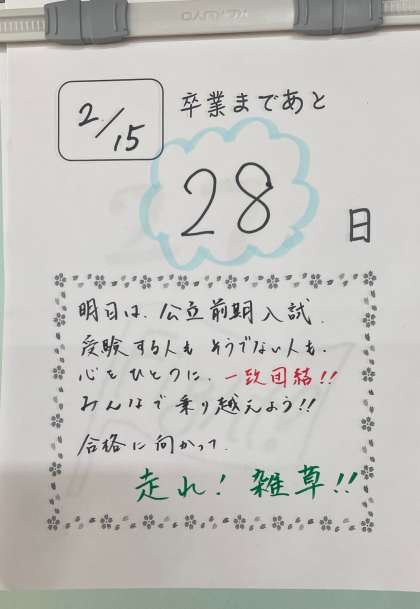 2/15
卒業まであと
28
日
明日は、公立前期入試.
受験する人も そうでない人も.
心をひとつに、一致団結!!
みんなで乗り越えよう!!
合格に向かって.
走れ! 雑草!!